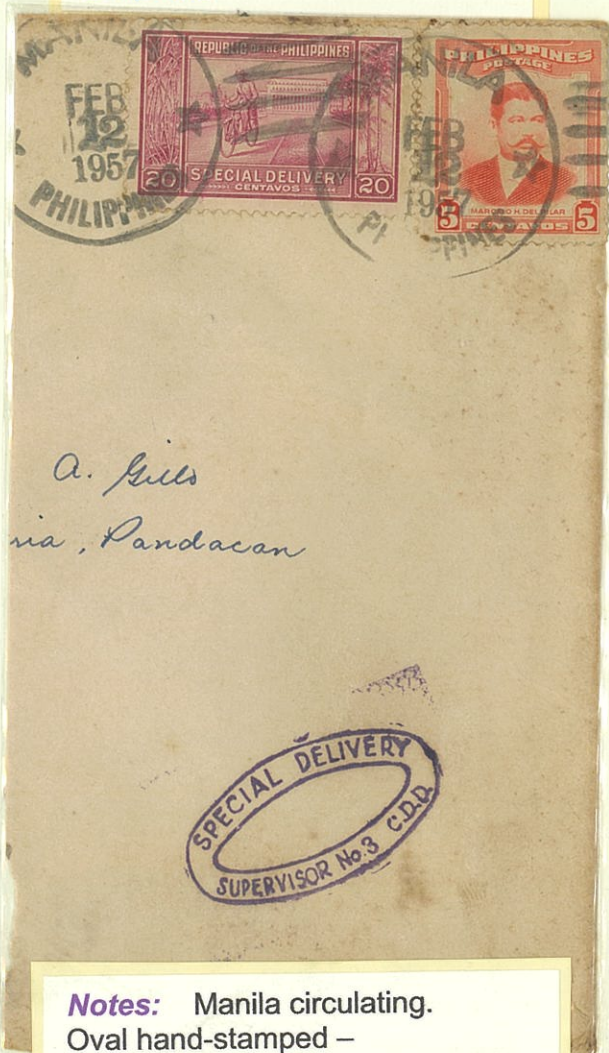 MANILA
FEB
12
1957
PHILIPPINES
REPUBLIC OF THE PHILIPPINES
20 SPECIAL DELIVERY 20
CENTAVOS
MANILA
FEB
12
1957
PHILIPPINES
PHILIPPINES
POSTAGE
MARCELO H. DEL PILAR
5 CENTAVOS 5
A.
nia, Pandacan
SPECIAL DELIVERY
SUPERVISOR No. 3 C.D.D.
Notes: Manila circulating.
Oval hand-stamped –